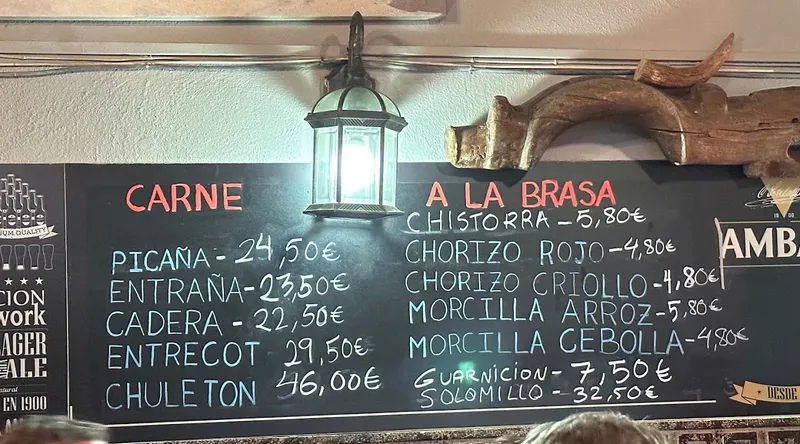 CARNE A LA BRASA
PICAÑA - 24,50€
ENTRAÑA - 23,50€
CADERA - 22,50€
ENTRECOT 29,50€
CHULETON 46,00€
CHISTORRA - 5,80€
CHORIZO ROJO - 4,80€
CHORIZO CRIOLLO - 4,80€
MORCILLA ARROZ - 5,80€
MORCILLA CEBOLLA - 4,80€
GUARNICION - 7,50€
SOLOMILLO - 32,50€
QUALITY
CION
work
LAGER
ALE
EN 1900
AMBA
DESDE